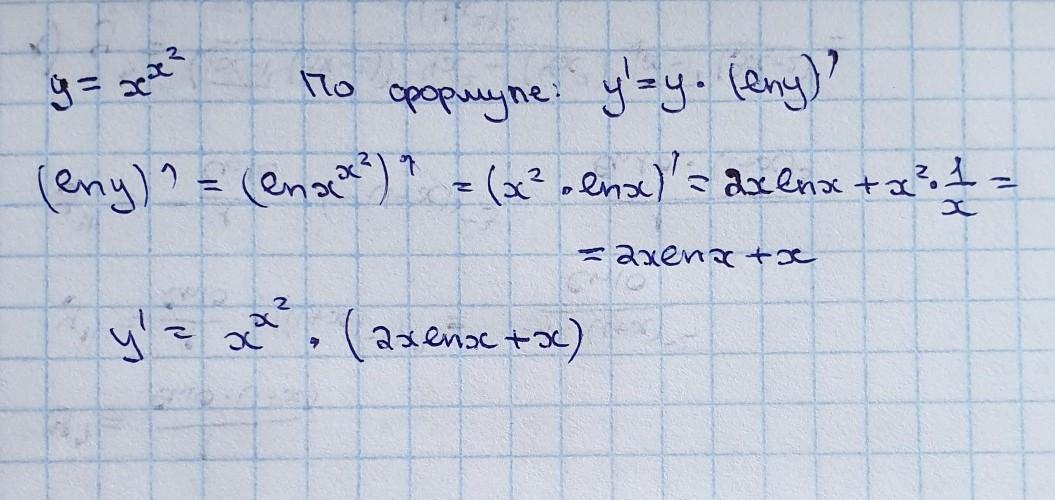 y = x^{x^2} По формуле: y' = y · (ln y)'
(ln y)' = (ln x^{x^2})' = (x^2 · ln x)' = 2x ln x + x^2 · \frac{1}{x} =
= 2x ln x + x
y' = x^{x^2} · (2x ln x + x)